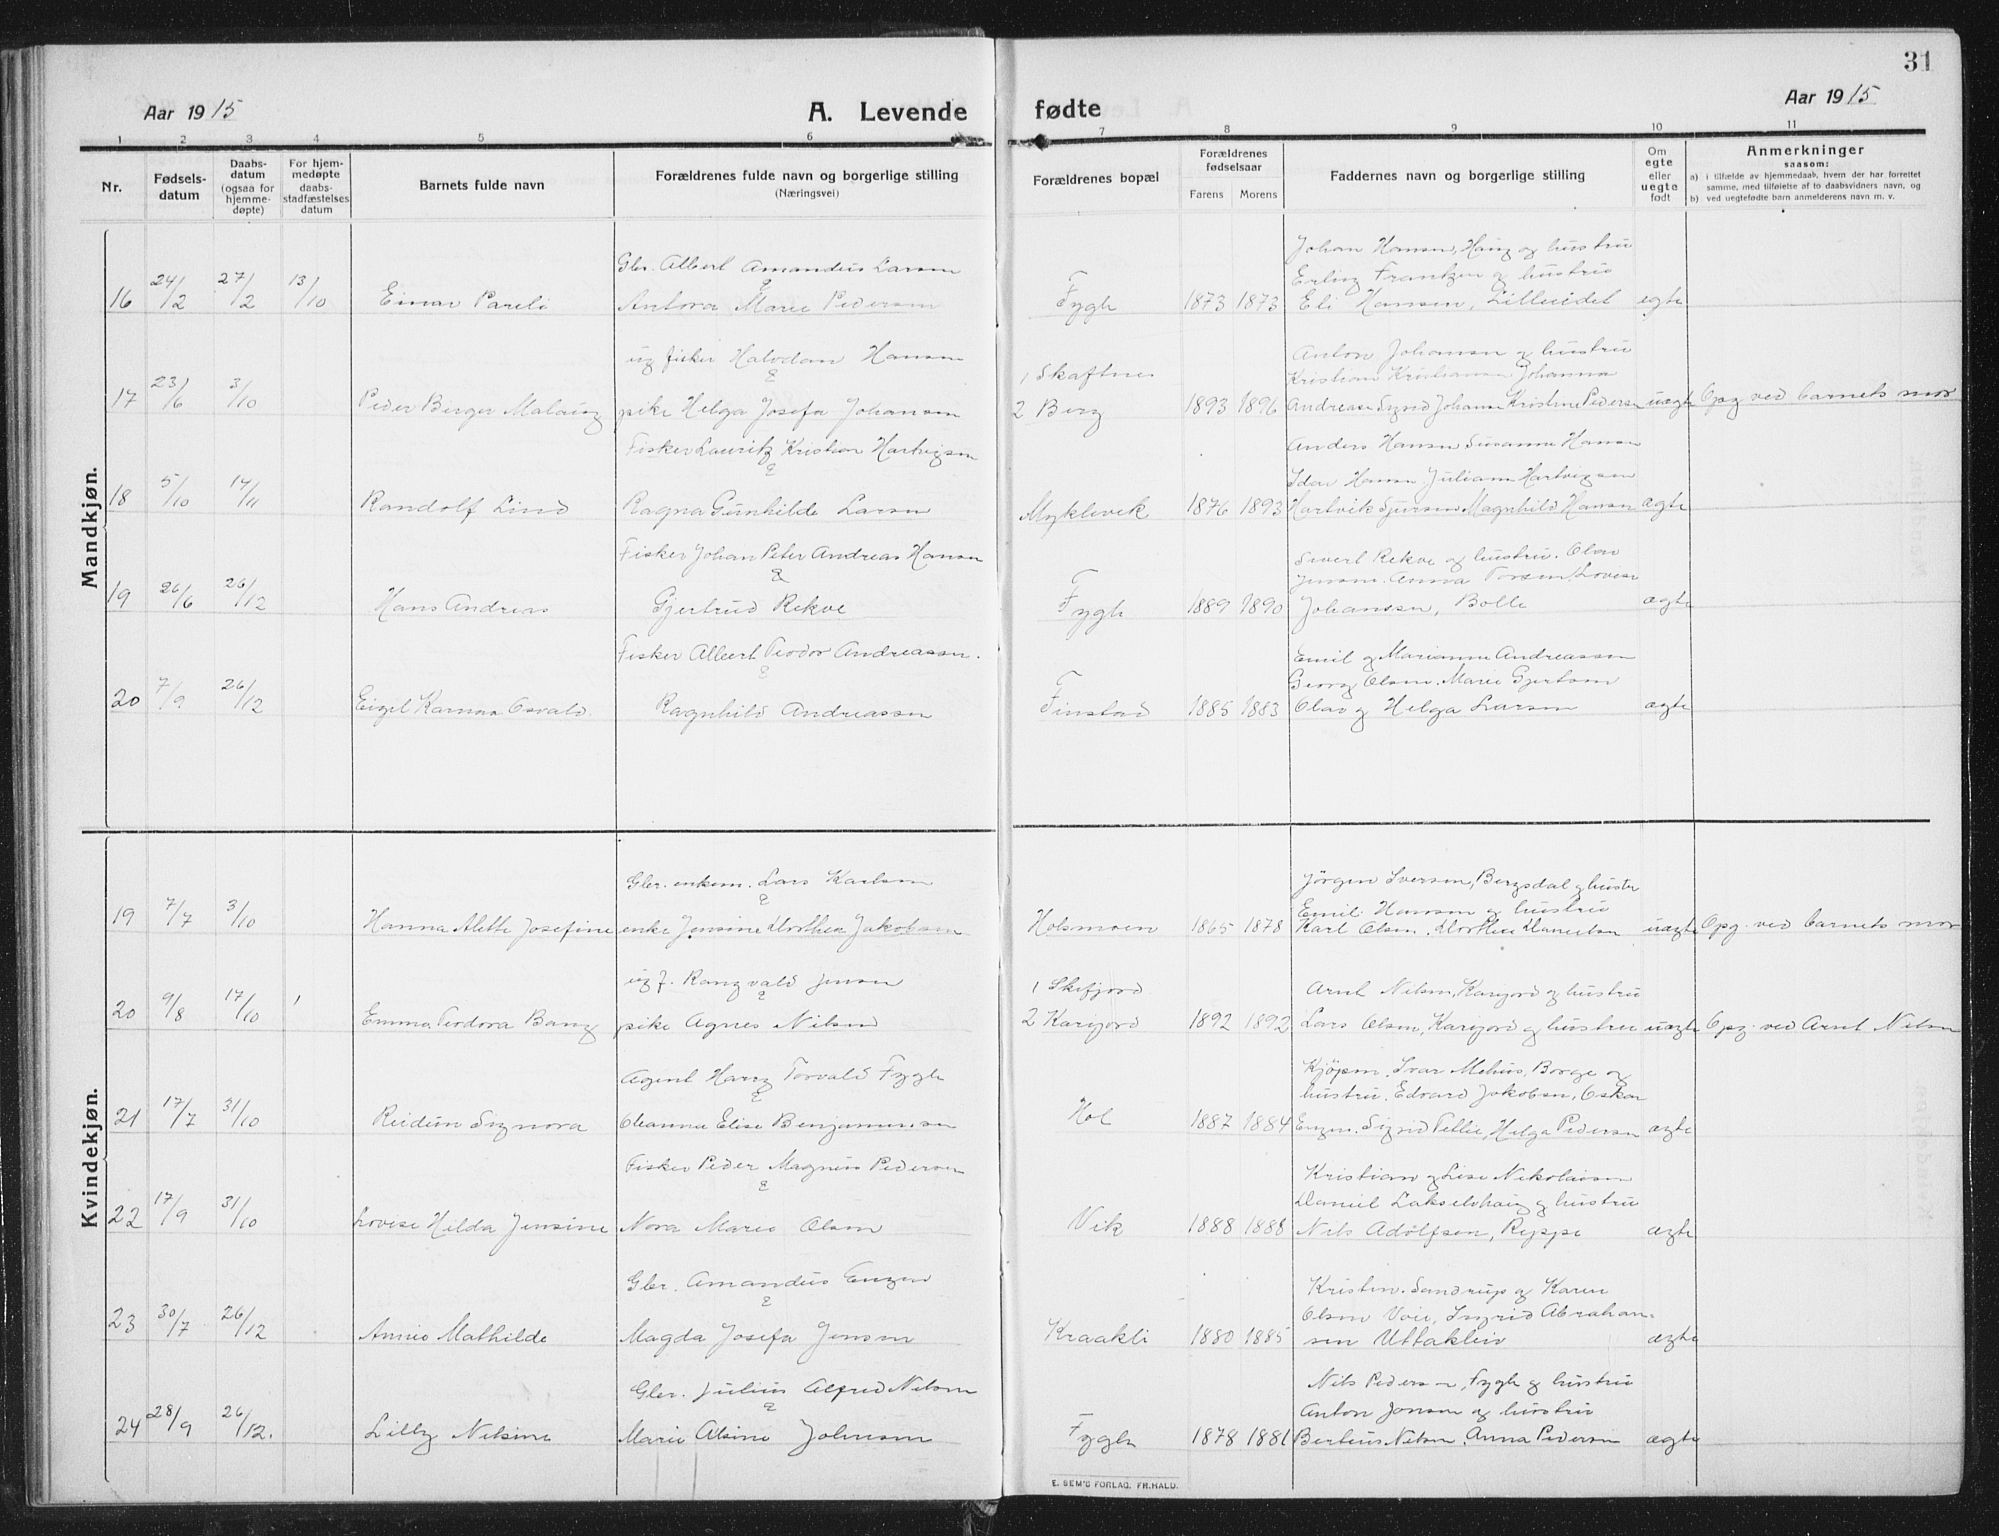 31
Aar 1915
A. Levende fødte
Aar 1915
1 2 3 4 5 6 7 8 9 10 11
Nr.
Fødselsdatum
Daabsdatum (ogsaa for hjemmedøpte)
For hjemmedøpte daabsstadfæstelses datum
Barnets fulde navn
Forældrenes fulde navn og borgerlige stilling (Næringsvei)
Forældrenes bopæl
Forældrenes fødselsaar
Farens Morens
Faddernes navn og borgerlige stilling
Om egte eller uegte født
Anmerkninger
saasom:
a) i tilfælde av hjemmedaab, hvem der har forrettet samme, med tilføielse af to daabsvidners navn, og
b) ved uegtefødte barn anmelderens navn m. v.
Mandkjøn.
Gbr. Albert Amandus Larsen
&
16 24/2 27/2 13/10 Einar Pareli Antora Marie Pedersen Fygle 1873 1873
Johan Hansen, Haug og hustru
Erling Frantzen og hustru
Eli Hansen, Lilleeidet egte
ug fisker Halvdan Hansen
&
17 23/6 3/10 Peder Birger Malaug pike Helga Josefa Johansen
1 Skaftnes
2 Berg 1893 1896
Anton Johansen og hustru
Kristian Kristiansen Johanna
Andreasen Sigrid Johansen Kristine Pedersen uægte Opg ved barnets mor
Fisker Lauritz Kristian Hartvigsen
&
18 5/10 14/11 Randolf Lind Ragna Gunhilde Larsen Myklevik 1876 1893
Anders Hansen Susanne Hansen
Idar Hansen Juliane Hartvigsen
Hartvik Sjursen Magnhild Hansen ægte
Fisker Johan Peter Andreas Hansen
&
19 26/6 26/12 Hans Andreas Gjertrud Rekve Fygle 1889 1890
Sivert Rekve og hustru. Olav
Jensen. Anna Torsen Lovise
Johanssen, Bolle ægte
Fisker Albert Teodor Andreassen.
&
20 7/9 26/12 Eigel Osvald. Ragnhild Andreassen Finstad 1885 1883
Emil og Marianne Andreassen
Georg Olsen. Marie Gjertsen
Olav og Helga Larsen ægte
Kvindekjøn.
Gbr. enkem. Lars Karlsen
&
19 7/7 3/10 Hanna Alette Josefine enke Jensine Dorthea Jakobsen Holsmoen 1865 1878
Jörgen Iversen, Bergsdal og hustru
Emil Hansen og hustru
Karl Olsen, Dorthea Danielsen uægte Opg. ved barnets mor
ug f. Rangvald Jensen
&
20 9/8 17/10 1 Emma Teodora Bang pike Agnes Nilsen
1 Skifjord
2 Karijord 1892 1892
Arnt Nilsen, Karijord og hustru
Lars Olsen, Karijord og hustru uægte Opg. ved Arnt Nilsen
Agent Harry Torvald Fygle
&
21 17/7 31/10 Reidun Signora Oleanna Elise Benjaminsen Hol 1887 1884
Kjöpm. Ivar Mehus, Borge og
hustru. Edvard Jakobsen, Oskar
Engen. Sigrid Petlie, Helga Pedersen ægte
Fisker Peder Magnus Pedersen
&
22 17/9 31/10 Lovise Hilda Jensine Nora Marie Olsen Vik 1888 1888
Kristian og Lise Nikolaisen
Daniel Lakselvhaug og hustru
Nils Adolfsen, Reppe ægte
Gbr. Amandus Engen
&
23 30/7 26/12 Annie Mathilde Magda Josefa Jensen Kraakli 1880 1885
Kristin. Sandrup og Karen
Olsen Voie, Ingrid Abraham-
sen Uttakleiv ægte
Gbr. Julius Alfred Nilsen
&
24 28/9 26/12. Lilly Nilsine Marie Alsine Johnsen Fygle 1878 1881
Nils Pedersen, Fygle og hustru
Anton Jonsen og hustru
Bertius Nilsen, Anna Pedersen ægte
E. SEM'S FORLAG, FR.HALD.